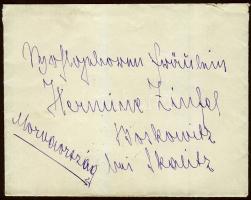 Hochgeboren Fräulein
Hermine Zinfel
Boskowitz
bei Skalitz
Morvaország